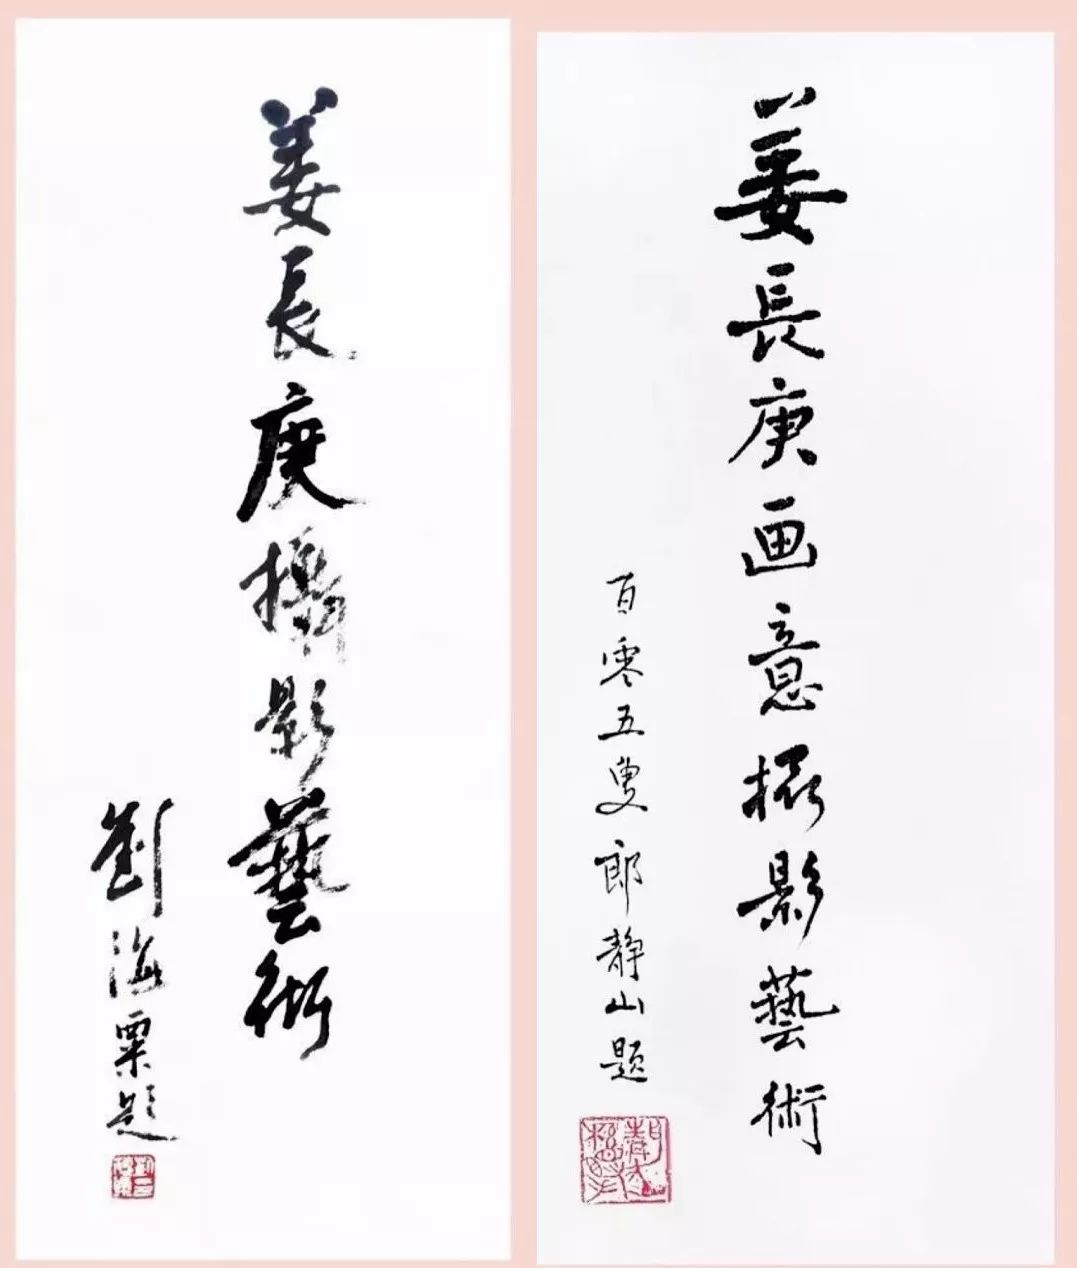 姜長庚攝影藝術
劉海粟題
姜長庚画意摄影藝術
百零五叟郎静山题